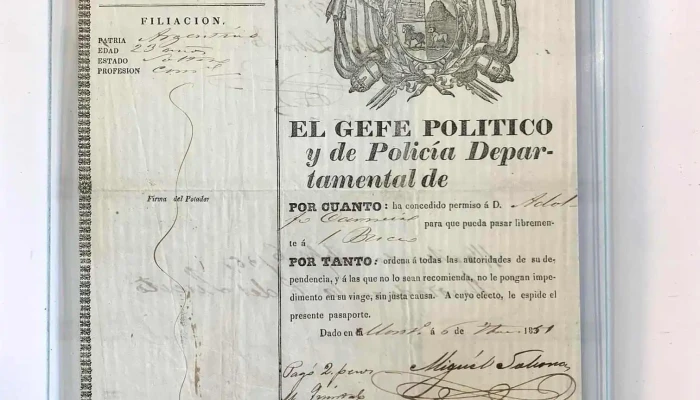 FILIACION.
PATRIA Argentino
EDAD 23 años
ESTADO Soltero
PROFESION Com
Firma del Potador
EL GEFE POLITICO
y de Policía Depar-
tamental de
POR CUANTO: ha concedido permiso á D. Adol
para que pueda pasar libremen-
te á
POR TANTO: ordena á todas las autoridades de su de-
pendencia, y á las que no lo sean recomienda, no le pongan impe-
dimento en su viage, sin justa causa. A cuyo efecto, le espide el
presente pasaporte.
Dado en á 6 de 1851
Pagó 2 pesos
Miguél